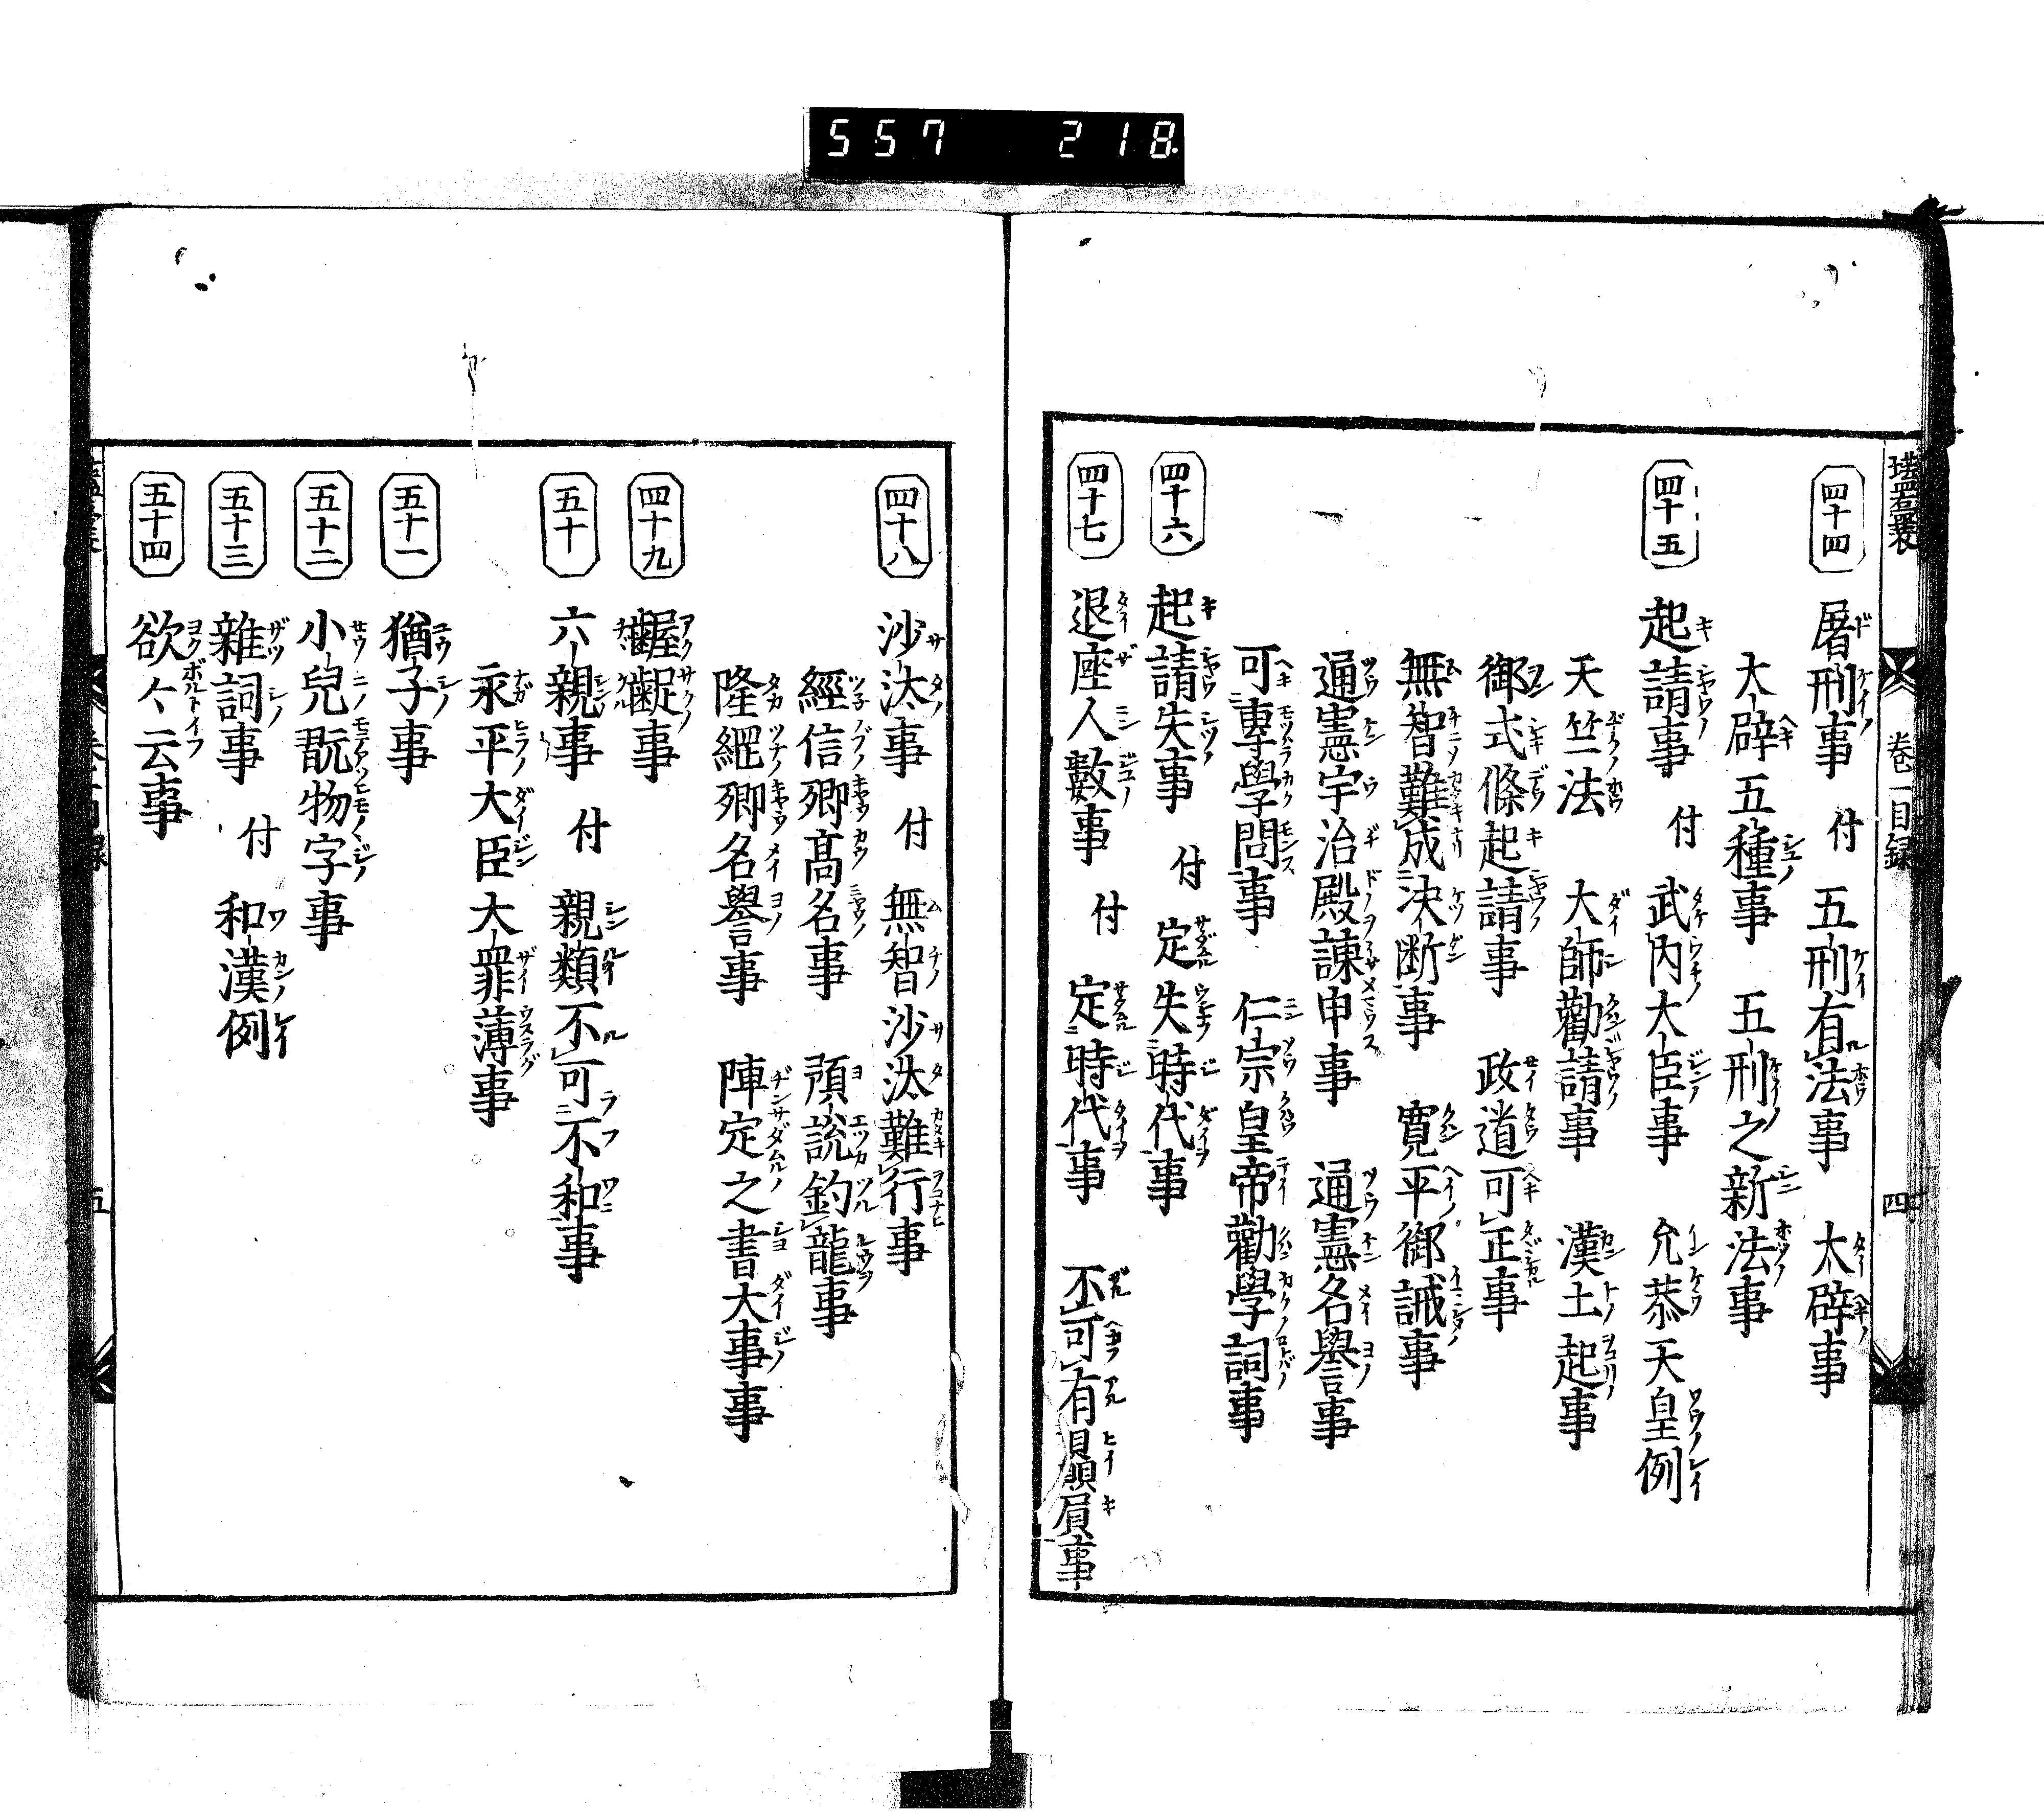 557 218
壒囊 巻一目録 四
四十四 屠刑事 付 五刑有法事 大辟事
大辟五種事 五刑之新法事
四十五 起請事 付 武内大臣事 允恭天皇例
天竺法 大師勸請事 漢土起事
御式條起請事 政道可正事
無智難成決断事 寛平御誡事
通憲宇治殿諫申事 通憲名譽事
可專學問事 仁宗皇帝勸學詞事
四十六 起請失事 付 定失時代事
四十七 退座人數事 付 定時代事 不可有贔屓事
四十八 沙汰事 付 無智沙汰難行事
經信卿髙名事 預說釣龍事
隆綱卿名譽事 陣定之書大事事
四十九 齷齪事
五十 六親事 付 親類不可不和事
永平大臣大罪薄事
五十一 猶子事
五十二 小兒翫物字事
五十三 雜詞事 付 和漢例
五十四 欲〻云事
五